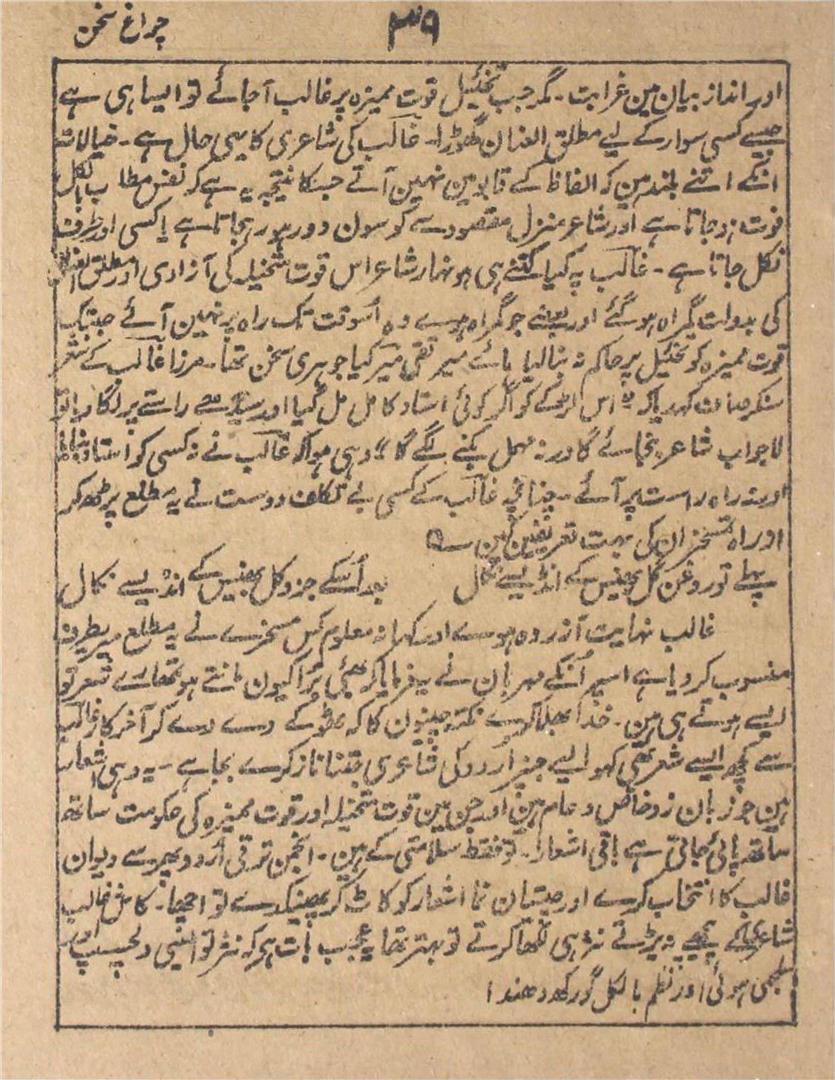 ۳۹
چراغ سخن
اور انداز بیان مین غرابت ۔ مگر جب تخئیل قوت ممیزہ پر غالب آجائے تو ایسا ہی ہے
جیسے کسی سوار کے لیے مطلق العنان گھوڑا ۔ غالب کی شاعری کا یہی حال ہے ۔ خیالات
انکے اتنے بلند ہین کہ الفاظ کے قابو مین نہین آتے جسکا نتیجہ یہ ہے کہ نفس مطلب بالکل
فوت ہو جاتا ہے اور شاعر منزل مقصود سے کوسون دور ہو رہجاتا ہے یا کسی اور طرف
نکل جاتا ہے ۔ غالب پہ کیا کتنے ہی ہونہار شاعر اس قوت متخیلہ کی آزادی اور مطلق العنانی
کی بدولت گمراہ ہو گئے اور بعضے جو گمراہ ہوے وہ اُسوقت تک راہ پر نہین آئے جبتک
قوت ممیزہ کو تخئیل پر حاکم نہ بنا لیا ہائے میر تقی میر کیا جوہری سخن تھا ۔ مرزا غالب کے شعر
سنکر صاف کہدیا کہ " اس لڑکے کو اگر کوئی استاد کامل مل گیا اور سیدھے راستے پر لگا دیا تو
لاجواب شاعر بنجائے گا ورنہ مہمل بکنے لگے گا " وہی ہوا کہ غالب نے نہ کسی کو استاد بنایا
اور نہ راہ راست پر آئے ۔ چنانچہ غالب کے کسی بے تکلف دوست نے یہ مطلع پڑھ کر
اور راہ تمسخر ان کی بہت تعریفین کین ے
پہلے تو روغن گل بھینس کے انڈے سے نکال بعد اُسکے جز و کل بھینس کے انڈے سے نکال
غالب نہایت آزردہ ہوے اور کہا نہ معلوم کس مسخرے نے یہ مطلع میریطرف
منسوب کر دیا ہے اسپر اُنکے مہربان نے یہ فرمایا کہ بھئی بُرا کیون مانتے ہو تمھارے شعر تو
ایسے ہوتے ہی ہین ۔ خدا بھلا کرے نکتہ چینون کا کہ ٹھوکے دے دے کر آخر کار غالب
سے کچھ ایسے شعر بھی کہوا لیے جنپر اُردو کی شاعری جتنا ناز کرے بجا ہے ۔ یہ وہی اشعار
ہین جو زبان زد خاص و عام ہین اور جن مین قوت متخیلہ اور قوت ممیزہ کی حکومت ساتھ
ساتھ پائی جاتی ہے باقی اشعار ۔ تو فقط سلامتی کے ہین ۔ انجمن ترقی اُردو پھر سے دیوان
غالب کا انتخاب کرے اور چیستان نما اشعار کو کاٹ کر پھینکدے تو اچھا ۔ کاش غالب
شاعری کے پیچھے نہ پڑتے نثر ہی لکھا کرتے تو بہتر تھا یہ عجب بات ہے کہ نثر تو ایسی دلچسپ اور
سلجھی ہوئی اور نظم بالکل گورکھ دھندا